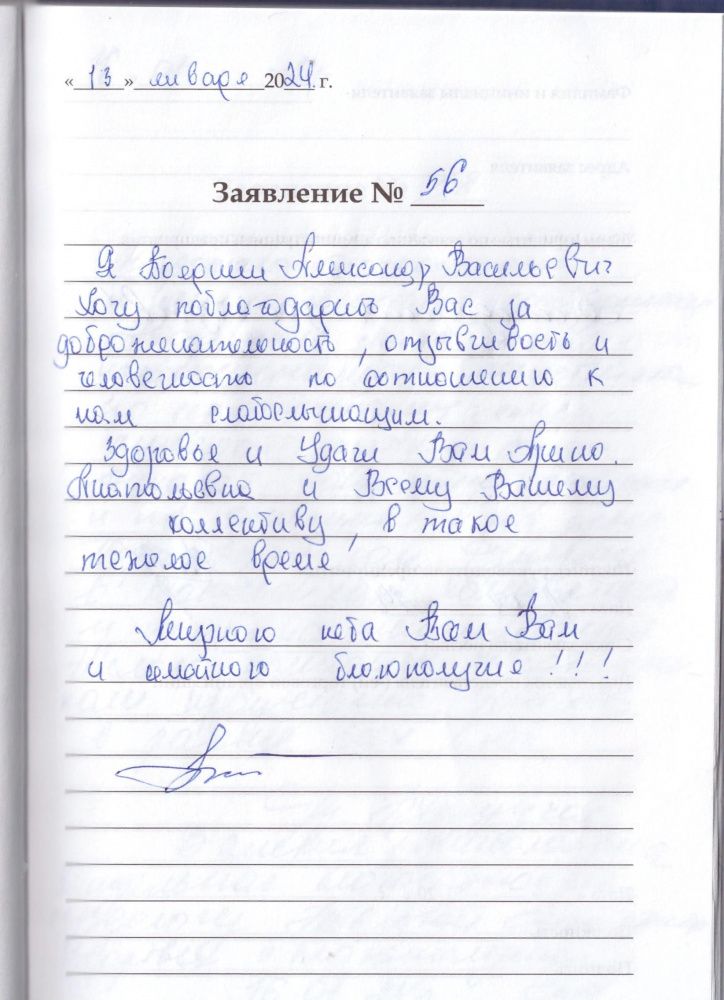 «13» января 2024 г.
Заявление № 56
Я Бояршин Александр Васильевич
Хочу поблагодарить Вас за
доброжелательность, отзывчивость и
человечность по отношению к
нам слабослышащим.
Здоровье и Удачи Вам
Анатольевна и Всему Вашему
коллективу, в такое
тежелое время
Мирного неба Всем Вам
и семейного благополучие!!!